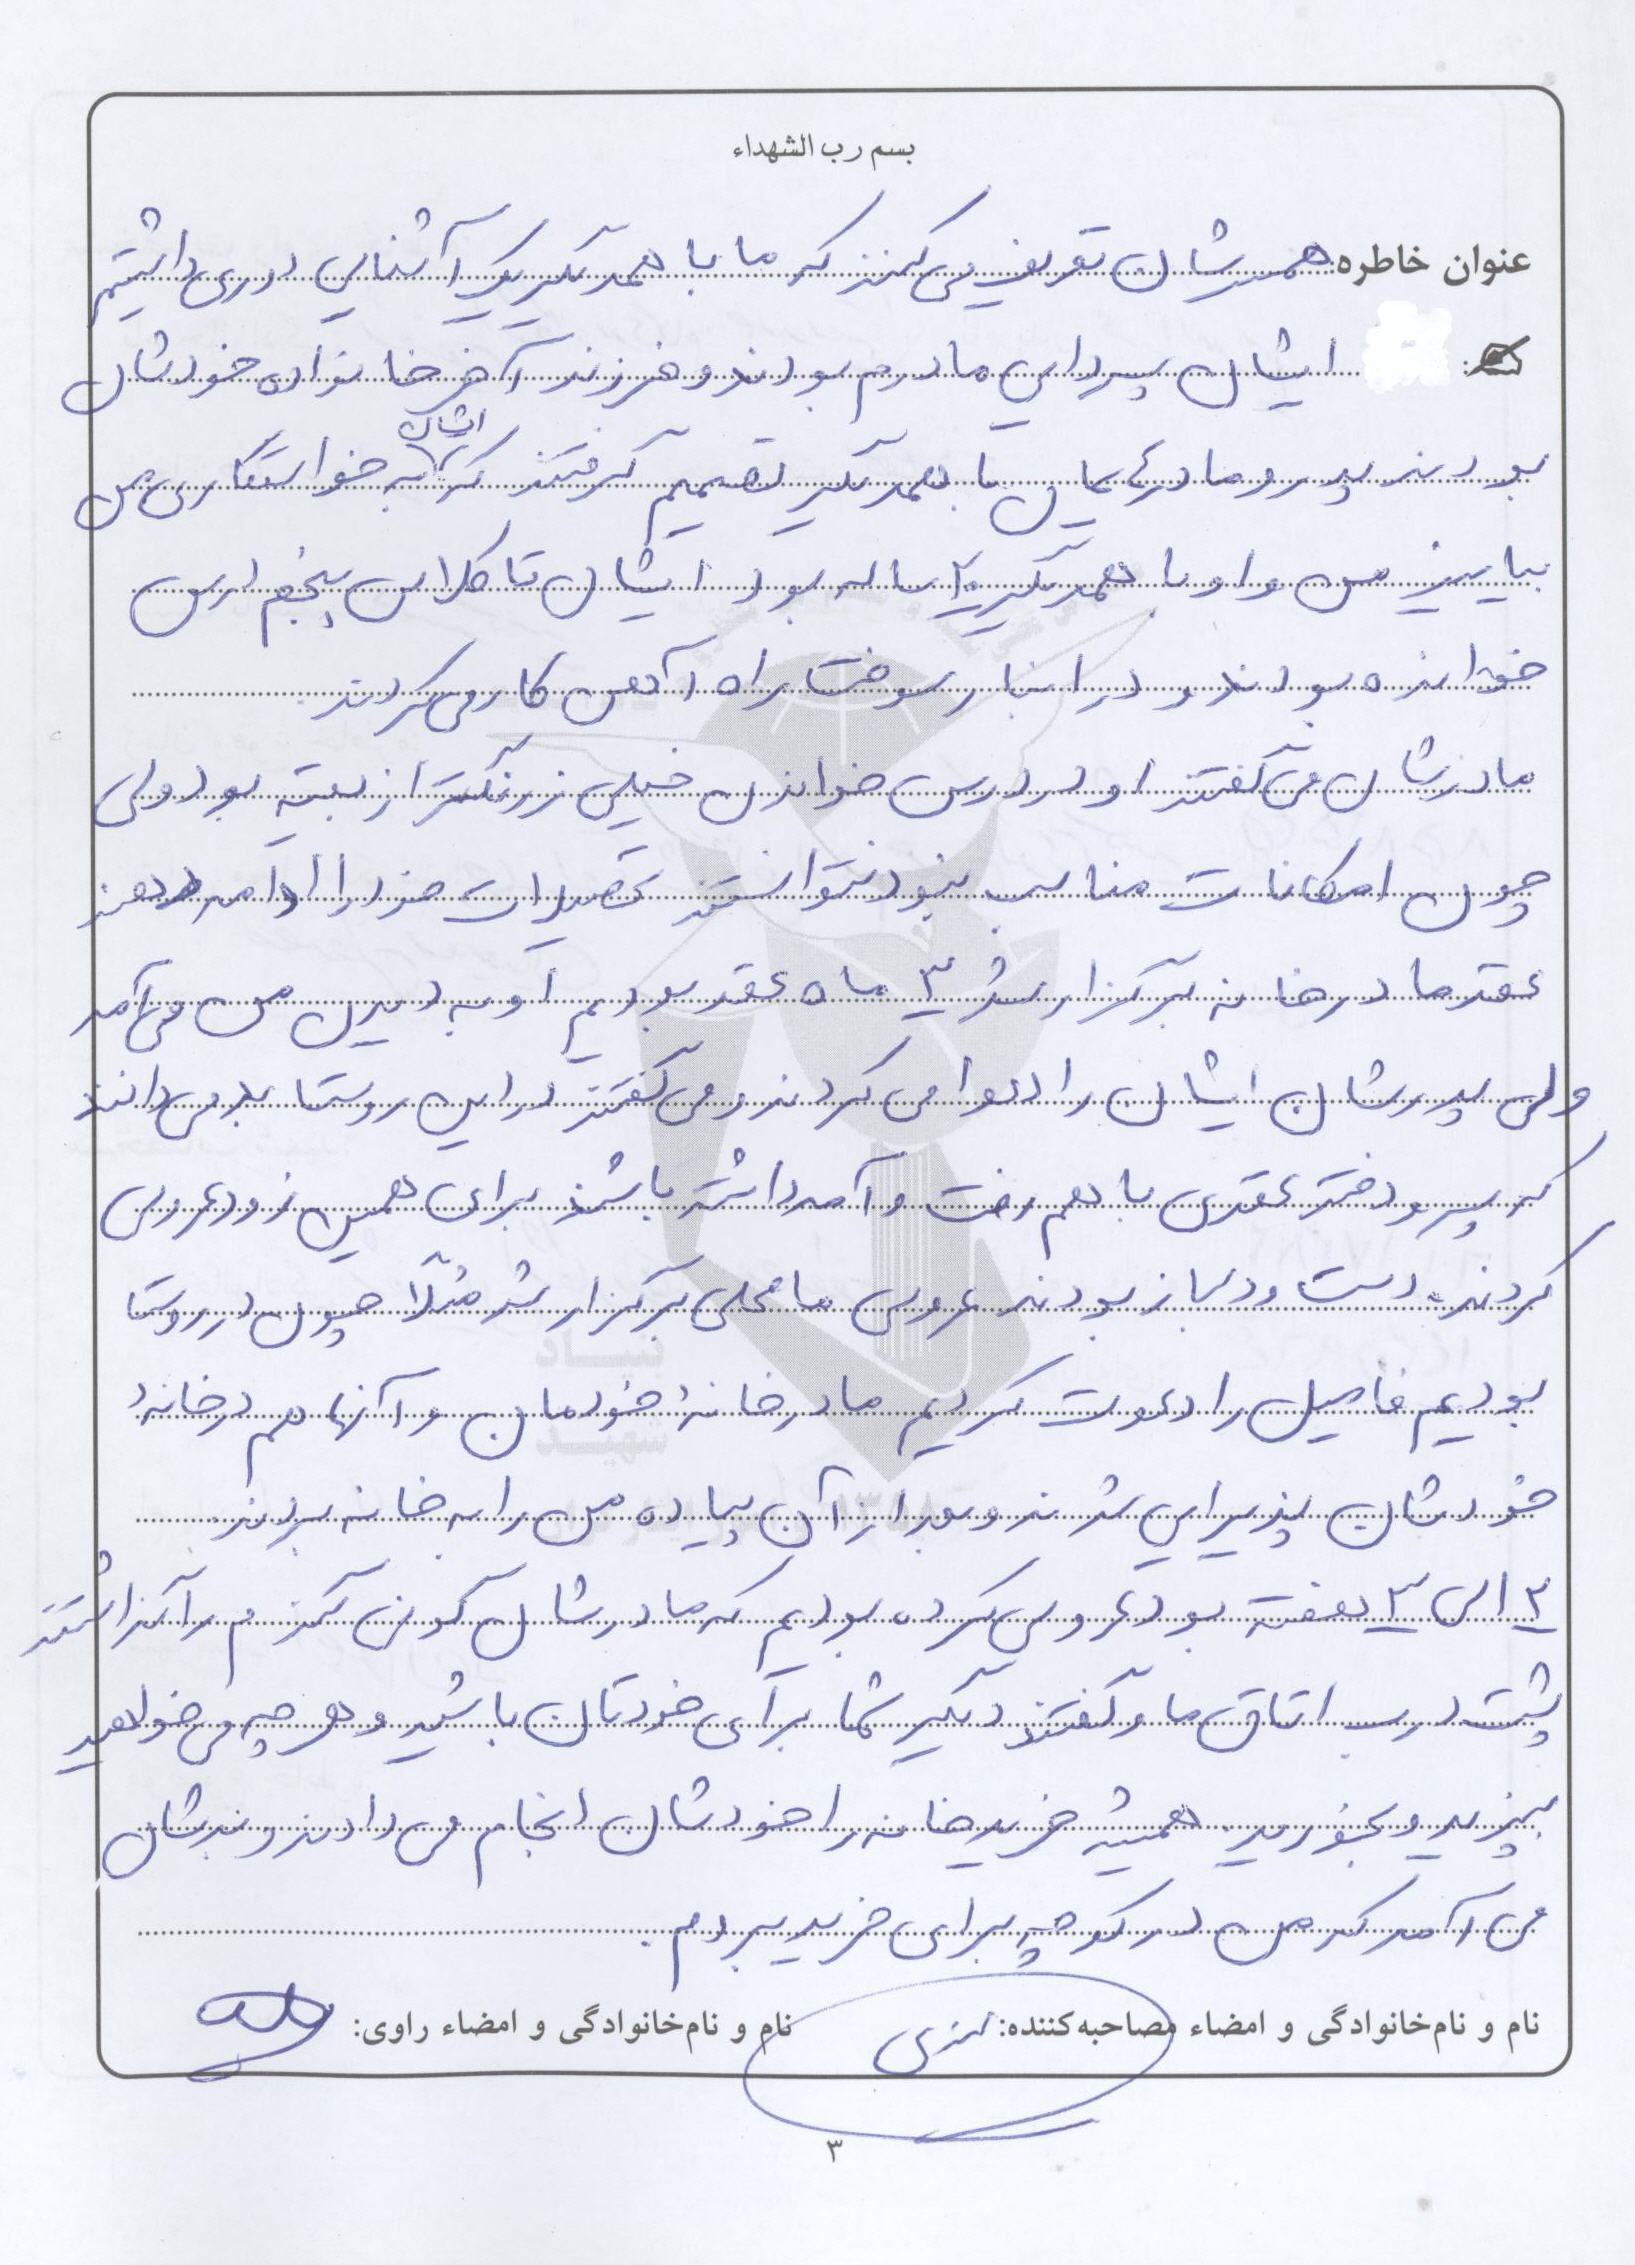 بسم رب الشهداء
عنوان خاطره: همسرشان تعریف می کنند که ما با همدیگر یک آشنایی دوری داشتیم
ایشان پسردایی مادرم بودند و فرزند آخر خانواده خودشان
بودند پدر و مادرهایمان با همدیگر تصمیم گرفتند که ایشان به خواستگاری من
بیایند من و او با همدیگر ۲۰ ساله بود ایشان تا کلاس پنجم درس
خوانده بودند و در انبار سوخت راه آهن کار می کردند.
مادرشان می گفتند او در درس خواندن خیلی زرنگتر از بقیه بود ولی
چون امکانات مناسب نبود نتوانستند تحصیلات خود را ادامه دهند
عقد ما در خانه برگزار شد ۳ ماه عقد بودیم او به دیدن من می آمد
ولی پدرشان ایشان را دعوا می کردند و می گفتند در این روستا بد می دانند
که پسر و دختر عقدی با هم رفت و آمد داشته باشند برای همین زود عروسی
کردند. دست و دلباز بودند عروسی ما محلی برگزار شد مثلاً چون در روستا
بودیم فامیل را دعوت کردیم ما در خانهٔ خودمان و آنها هم در خانهٔ
خودشان پذیرایی شدند و بعد از آن پیاده من را به خانه بردند.
۲ الی ۳ هفته بود عروسی کرده بودیم که مادرشان گونی گندم را گذاشتند
پشت درب اتاق ما و گفتند دیگر شما برای خودتان باشید و هر چه می خواهید
بپزید و بخورید. همیشه خرید خانه را خودشان انجام می دادند و بدشان
می آمد که من در کوچه برای خرید بروم.
نام و نام‌خانوادگی و امضاء مصاحبه‌کننده: نام و نام‌خانوادگی و امضاء راوی:
۳